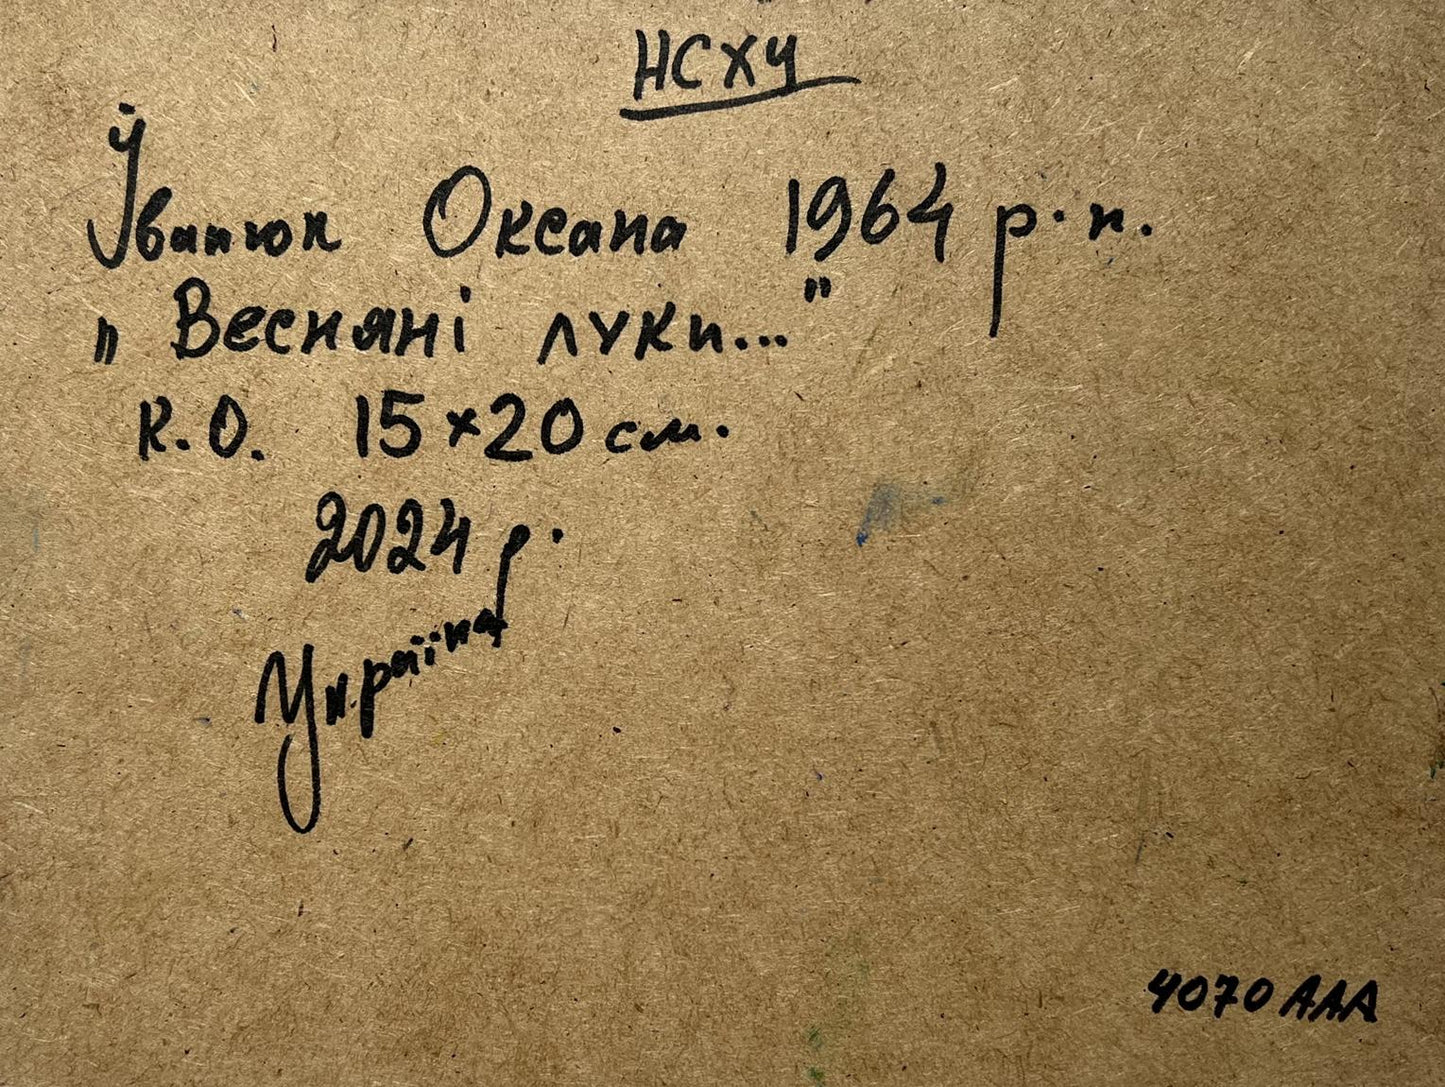 НСХУ
Іванюк Оксана 1964 р.н.
„Весняні луки..."
к.о. 15×20 см.
2024 р.
Україна
4070 ААА